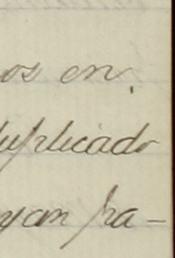 os en
duplicado
yan pa-